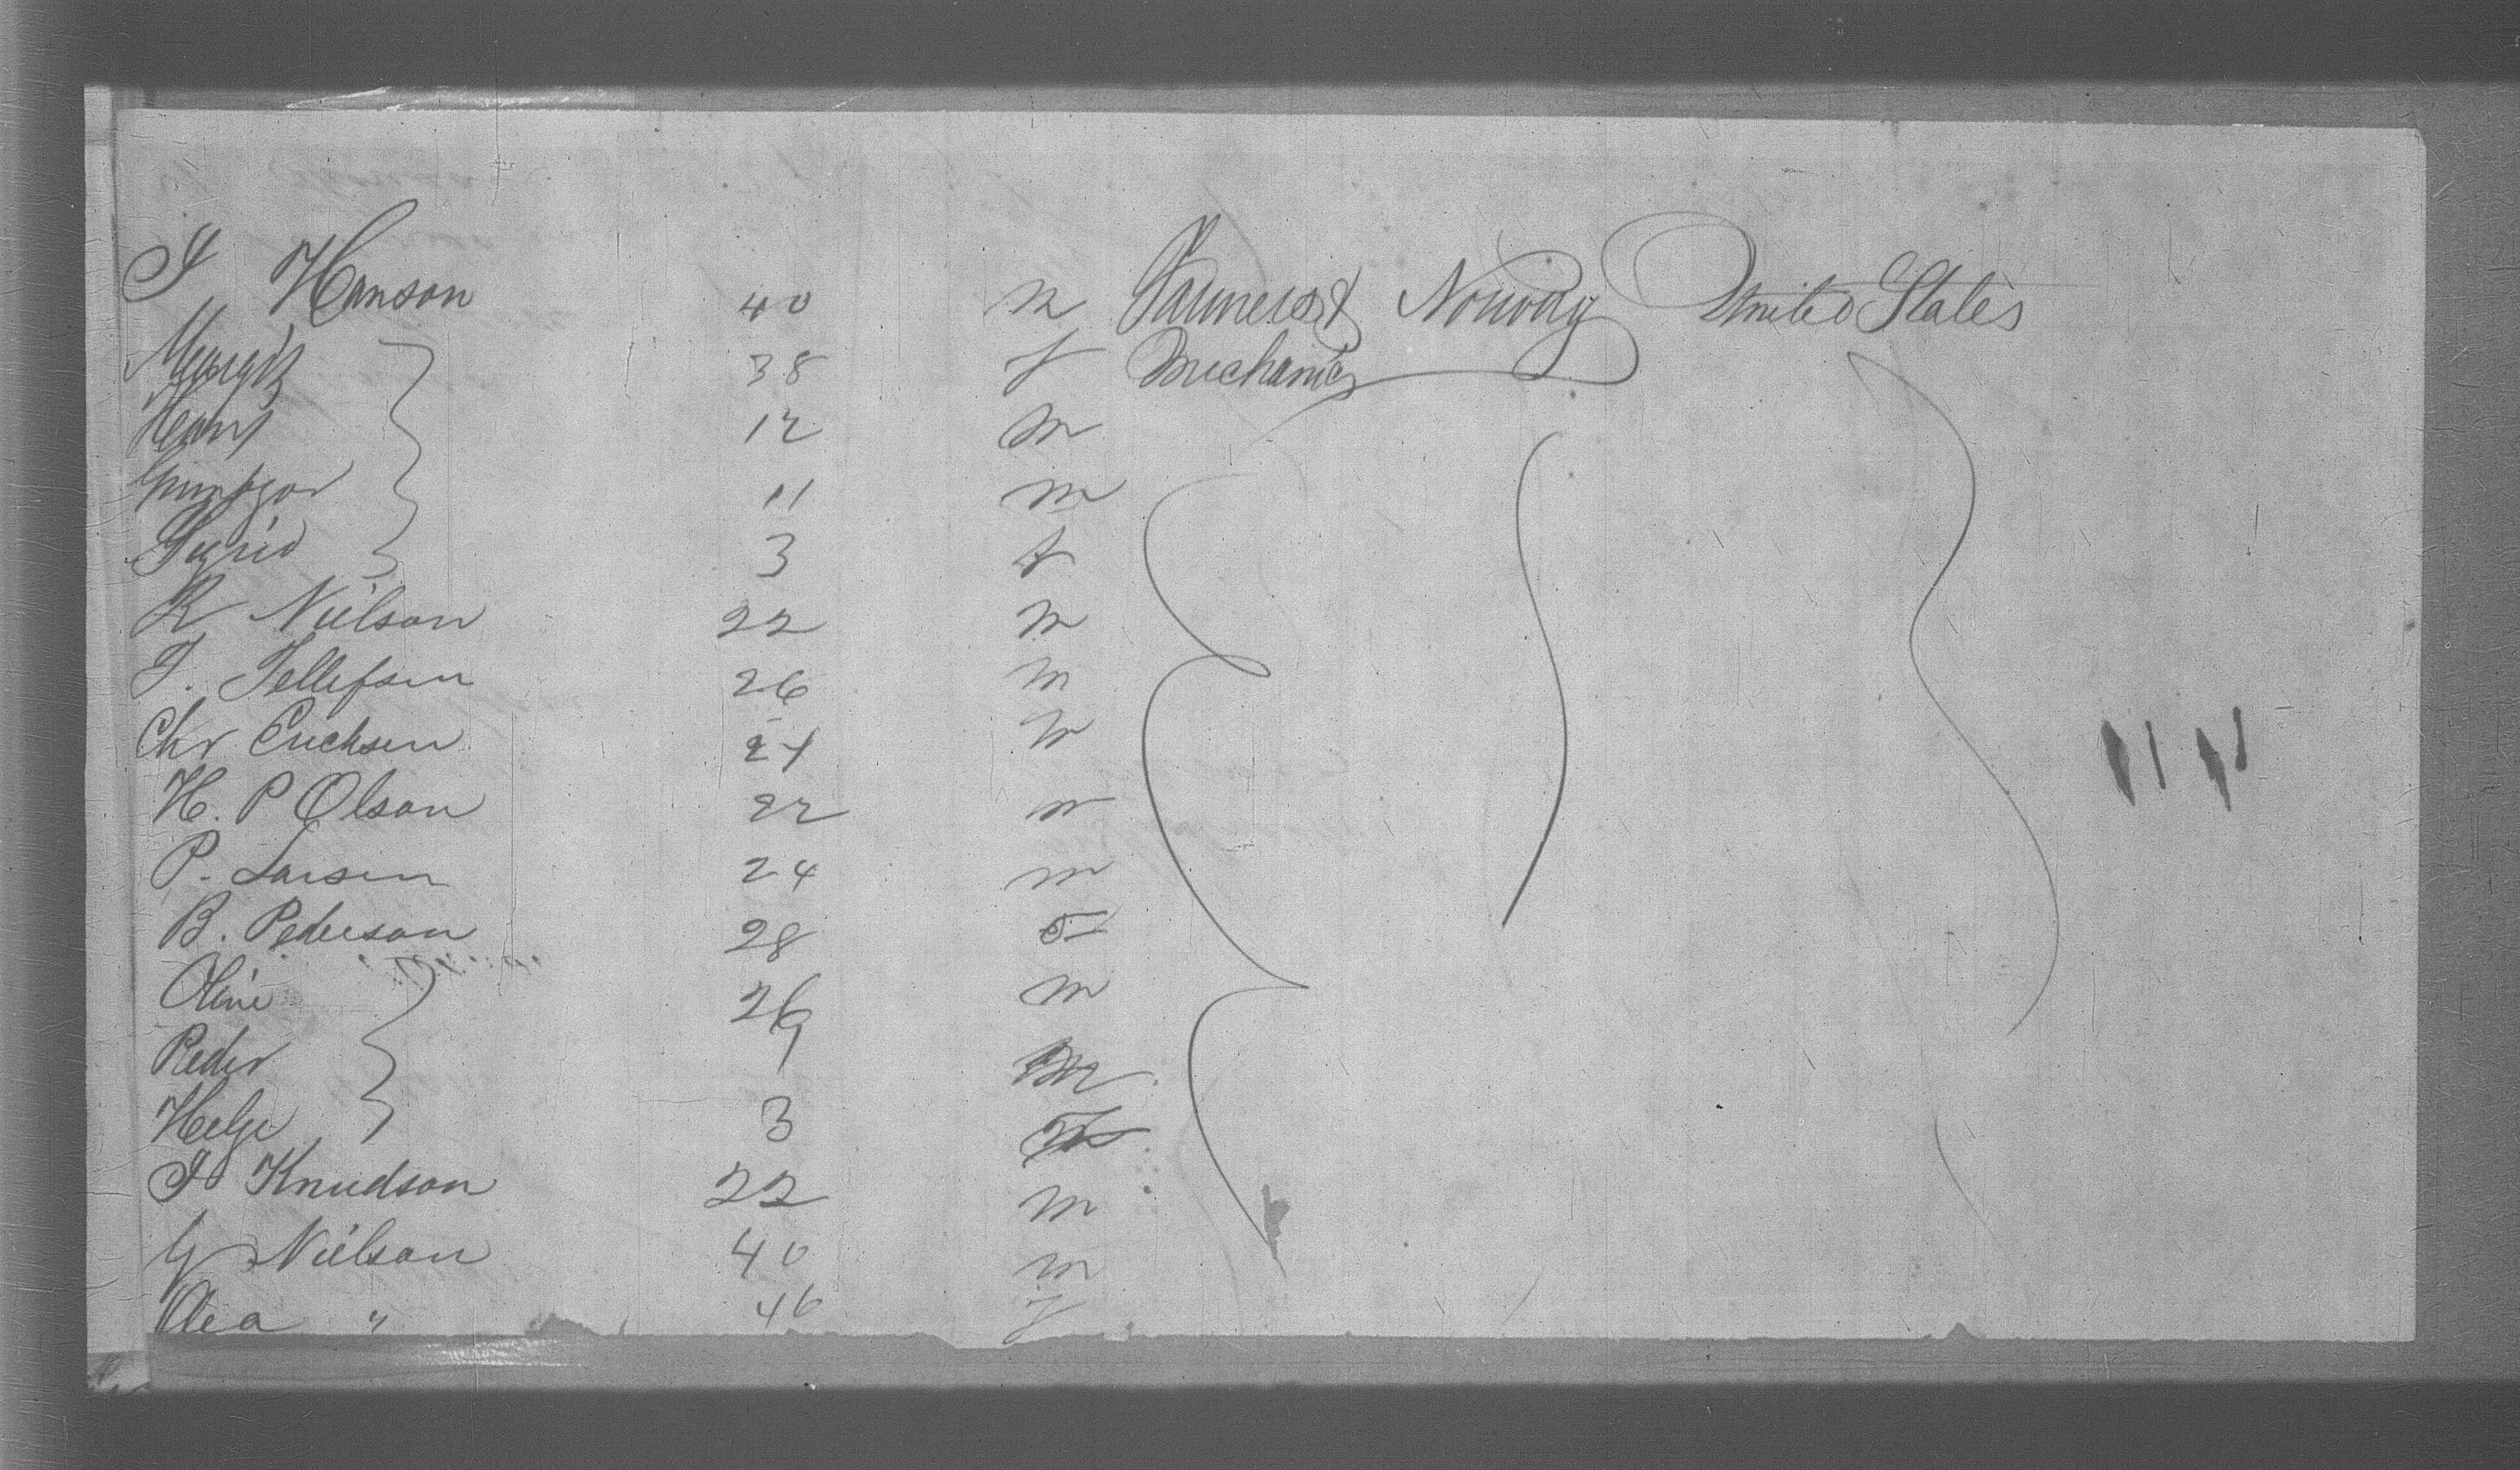 J Hanson 40 m Farmers & Norway United States
Margit 38 f Mechanics
Hans 12 m
11 m
Sigrid 3 f
R Nielson 22 m
T. Tellefsen 26 m
Chr Erichsen 24 m
H. P Olson 22 m
P. Larsen 24 m
B. Pederson 28
Oline 26 m
Peder 9 m
Helge 3
J Knudson 22 m
G Nielson 40 m
Aea " 46 f